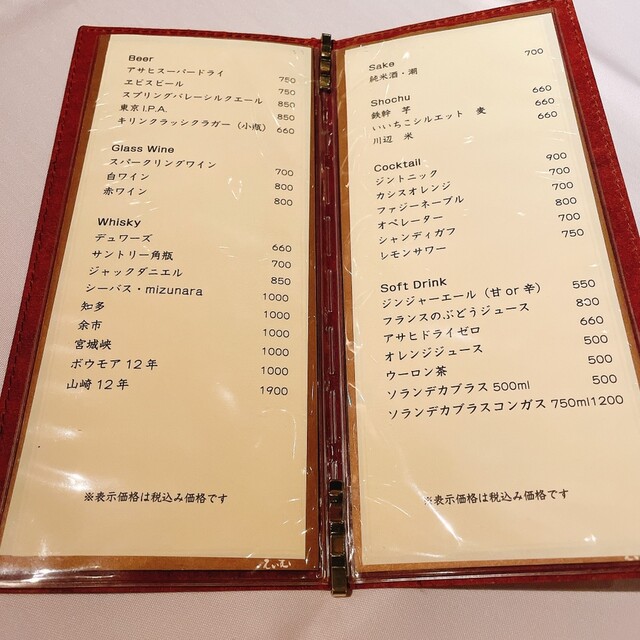 Beer
アサヒスーパードライ 750
ヱビスビール 750
スプリングバレーシルクエール 850
東京I.P.A. 850
キリンクラッシクラガー（小瓶） 660
Glass Wine
スパークリングワイン 700
白ワイン 800
赤ワイン 800
Whisky
デュワーズ 660
サントリー角瓶 700
ジャックダニエル 850
シーバス・mizunara 1000
知多 1000
余市 1000
宮城峡 1000
ボウモア12年 1000
山崎12年 1900
※表示価格は税込み価格です
Sake
純米酒・潮 700
Shochu
鉄幹 芋 660
いいちこシルエット 麦 660
川辺 米 660
Cocktail
ジントニック 900
カシスオレンジ 700
ファジーネーブル 700
オペレーター 800
シャンディガフ 700
レモンサワー 750
Soft Drink
ジンジャーエール（甘or辛） 550
フランスのぶどうジュース 800
アサヒドライゼロ 660
オレンジジュース 500
ウーロン茶 500
ソランデカブラス500ml 500
ソランデカブラスコンガス750ml1200
※表示価格は税込み価格です